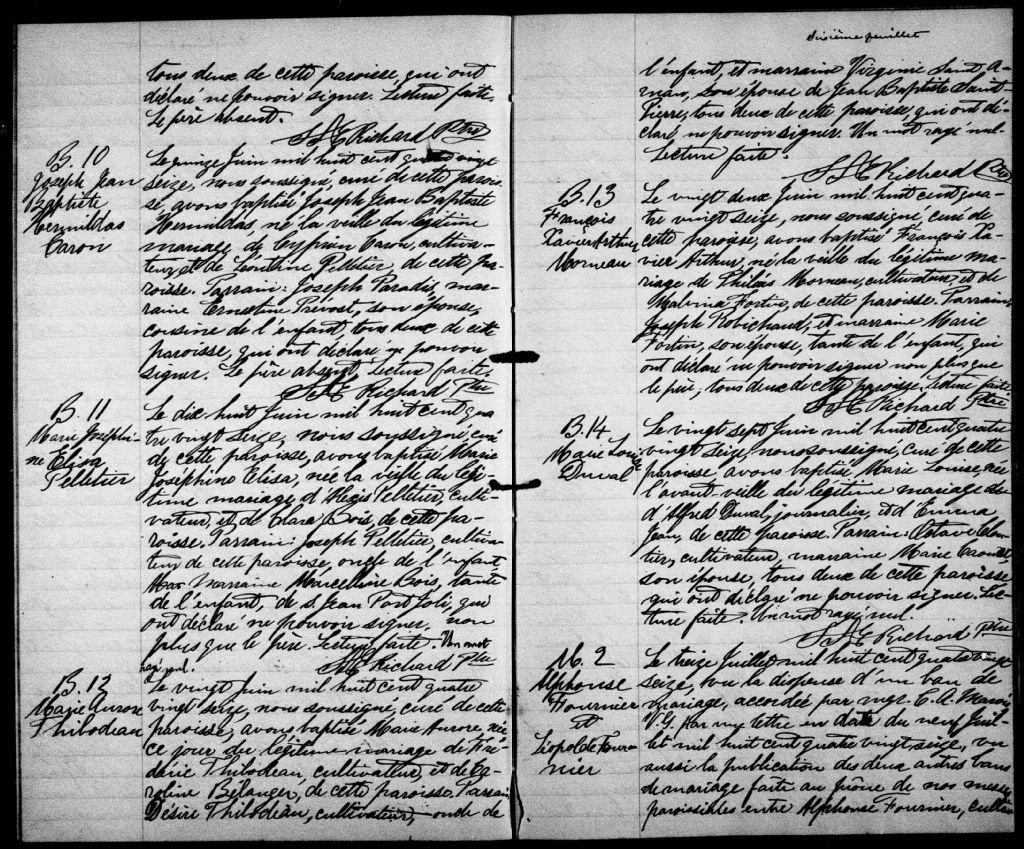 tous deux de cette paroisse, qui ont
déclaré ne pouvoir signer. Lecture faite.
Le père absent.
Richard Ptre
B. 10
Joseph Jean
Baptiste
Hermildas
Caron
Le quinze Juin mil huit cent quatre vingt
seize, nous soussigné, curé de cette parois-
se, avons baptisé Joseph Jean Baptiste
Hermildas, né la veille du légitime
mariage de Cyprien Caron, cultiva-
teur, et de Léontine Pelletier, de cette pa-
roisse. Parrain: Joseph Paradis, mar-
raine Ernestine Prévost, son épouse,
cousine de l'enfant, tous deux de cette
paroisse, qui ont déclaré ne pouvoir
signer. Le père absent. Lecture faite.
Richard Ptre
B. 11
Marie Joséphi-
ne Elisa
Pelletier
Le dix huit Juin mil huit cent qua
tre vingt seize, nous soussigné, curé
de cette paroisse, avons baptisé Marie
Joséphine Elisa, née la veille du légi-
time mariage d'Régis Pelletier, culti-
vateur, et de Clara Bois, de cette pa-
roisse. Parrain: Joseph Pelletier, cultiva
teur de cette paroisse, oncle de l'enfant,
marraine Marcelline Bois, tante
de l'enfant, de S. Jean Port Joli, qui
ont déclaré ne pouvoir signer, non
plus que le père. Lecture faite. Un mot
rayé nul.
Richard Ptre
B. 12
Marie Aurore
Thibodeau
Le vingt Juin mil huit cent quatre
vingt seize, nous soussigné, curé de cette
paroisse, avons baptisé Marie Aurore, née
ce jour du légitime mariage de Fré-
déric Thibodeau, cultivateur, et de Ca-
roline Bélanger, de cette paroisse. Parrain
Désiré Thibodeau, cultivateur, oncle de
Sixième feuillet
l'enfant, et marraine Virginie Saint, A-
mand, son épouse de Jean Baptiste Saint-
Pierre, tous deux de cette paroisse, qui ont dé-
claré ne pouvoir signer. Un mot rayé nul.
Lecture faite.
Richard Ptre
B. 13
François
Xavier Arthur
Morneau
Le vingt deux Juin mil huit cent qua-
tre vingt seize, nous soussigné, curé de
cette paroisse, avons baptisé François Xa-
vier Arthur, né la veille du légitime ma-
riage de Philéas Morneau, cultivateur, et de
Malvina Fortin, de cette paroisse. Parrain
Joseph Robichaud, et marraine Marie
Fortin, son épouse, tante de l'enfant, qui
ont déclaré ne pouvoir signer non plus que
le père; tous deux de cette paroisse. Lecture faite
Richard Ptre
B. 14
Marie Louise
Duval
Le vingt sept Juin mil huit cent quatre
vingt seize, nous soussigné, curé de cette
paroisse avons baptisé Marie Louise, née
l'avant veille du légitime mariage
d'Alfred Duval, journalier, et d'Emma
Jean, de cette paroisse. Parrain: Octave Clou-
tier, cultivateur, marraine Marie Caouette,
son épouse, tous deux de cette paroisse
qui ont déclaré ne pouvoir signer. Lec-
ture faite. Un mot rayé nul.
Richard Ptre
M. 2
Alphonse
Fournier
et
Léopolde Four-
nier
Le treize Juillet mil huit cent quatre vingt
seize, vu la dispense d'un ban de
mariage, accordée par mgr. C. A. Marois
V.G. par sa lettre en date du neuf Juil-
let mil huit cent quatre vingt seize, vu
aussi la publication des deux autres bans
de mariage faite au prône de nos messes
paroissiales entre Alphonse Fournier, cultiva